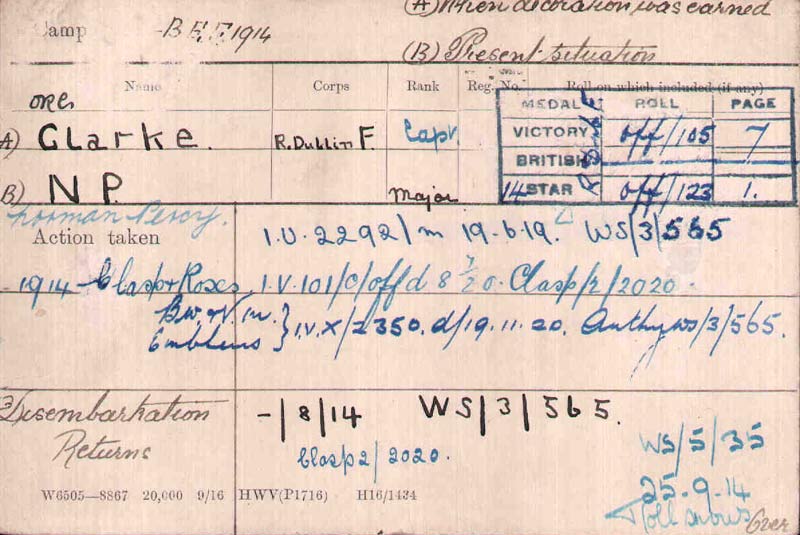 (A) When decoration was earned
Camp -B.E.F. 1914
(B) Present situation
Name Corps Rank Reg. No. Roll on which included (if any)
MEDAL ROLL PAGE
A) Clarke. R. Dublin F. Capt VICTORY R Dub F off/105 7
BRITISH
B) N P. Major 14 STAR off/123 1.
Norman Percy.
Action taken I.V. 2292/m 19-6-19. WS/3/565
1914 - Clasp & Roses. I.V. 101/C/off d 8/7/20. Clasp/2/2020.
B.W. & V.M.
Emblems } I.V. X/2350. d/19.11.20. Authy WS/3/565.
Disembarkation
Returns
-/8/14 WS/3/565.
Clasp 2/2020.
WS/5/35
25.9.14
W6505—8867 20,000 9/16 HWV(P1716) H16/1434
Roll Over